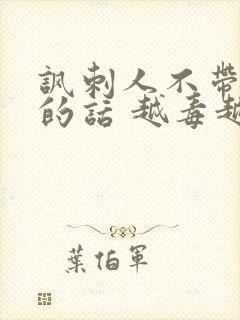 諷刺人不帶
的話 越毒越
葉伯軍